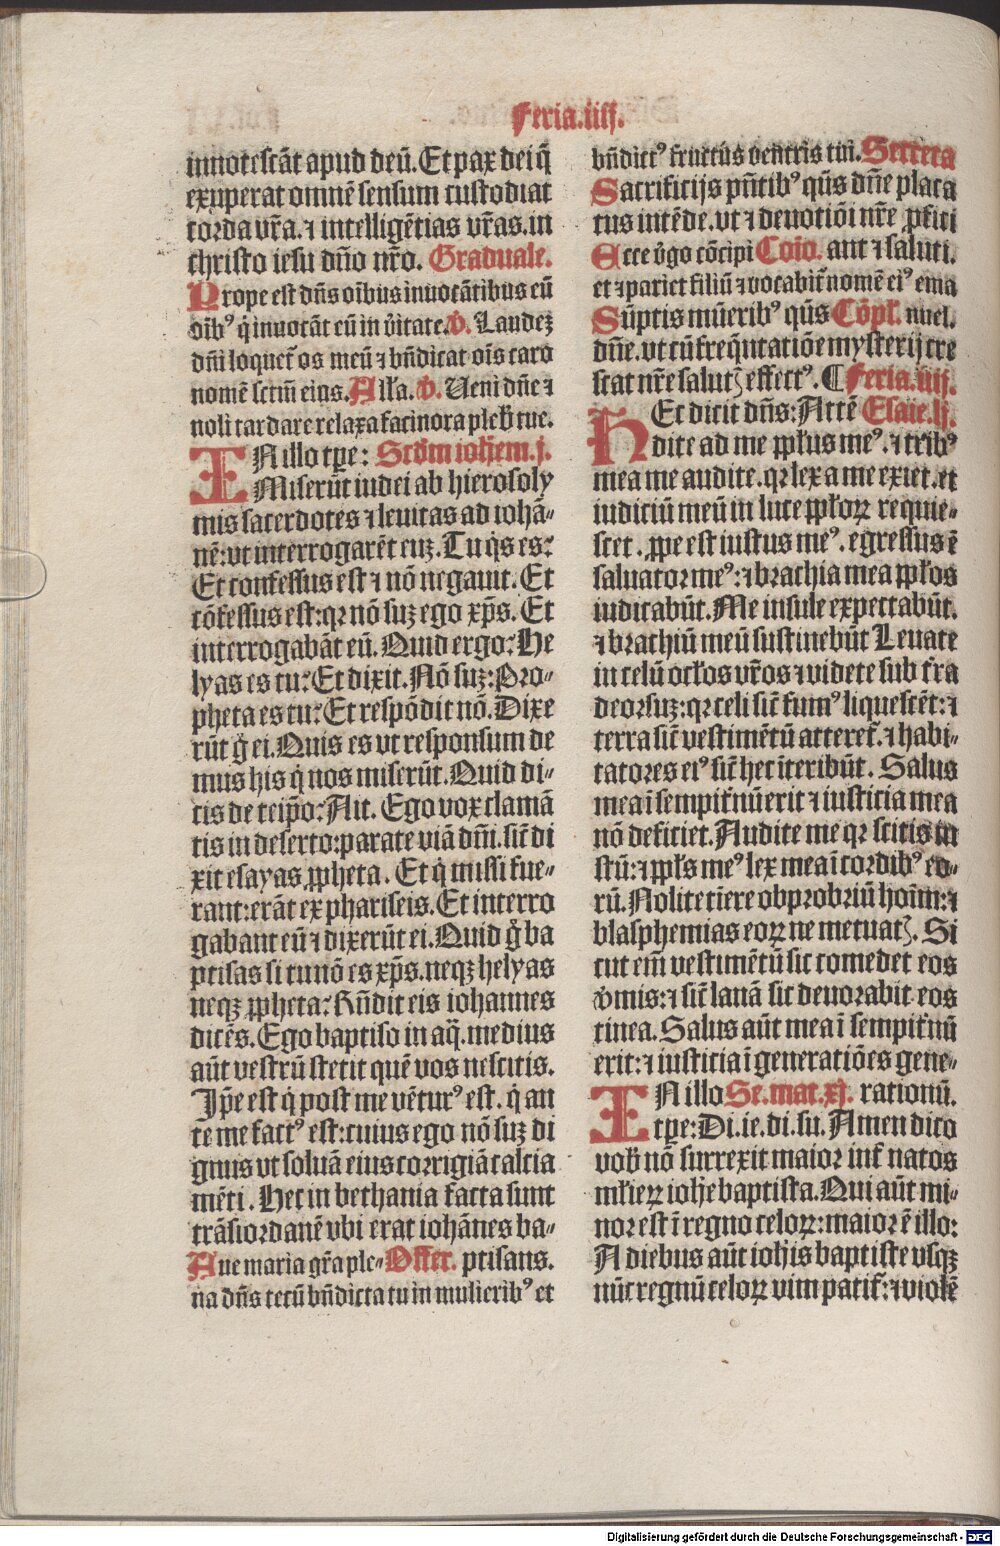 Feria.iiij.
innotescāt apud deū. Et pax dei q̄
exuperat omnē sensum custodiat
corda vr̄a. ⁊ intelligētias vr̄as. in
christo iesu dn̄o nr̄o. Graduale.
Prope est dn̄s oībus inuocātibus eū
oīb⁹ q̇ inuocāt eū in v̇itate. V̇. Laudeꝫ
dn̄i loquet᷑ os meū ⁊ bn̄dicat oīs caro
nomē sctm̄ eius. Alla. V̇. Ueni dn̄e ⁊
noli tardare relaxa facinora pleb̄ tue.
IN illo tꝑe: Scd̄m ioh̄em. j.
Miserūt iudei ab hierosoly
mis sacerdotes ⁊ leuitas ad iohā-
nē: vt interrogarēt euꝫ. Tu q̇s es?
Et confessus est ⁊ nō negauit. Et
cōfessus est: qꝛ nō suꝫ ego xp̄s. Et
interrogabāt eū. Quid ergo? He
lyas es tu? Et dixit. Nō suꝫ: Pro-
pheta es tu? Et respōdit nō. Dixe
rūt g̊ ei. Quis es vt responsum de
mus his q̇ nos miserūt. Quid di-
cis de teip̄o? Ait. Ego vox clamā
tis in deserto: parate viā dn̄i. sic̄ di
xit esayas ꝓpheta. Et q̇ missi fue-
rant: erāt ex phariseis. Et interro
gabant eū ⁊ dixerūt ei. Quid g̊ ba
ptisas si tu nō es xp̄s. neqꝫ helyas
neqꝫ ꝓpheta? Rn̄dit eis iohannes
dicēs. Ego baptiso in aq̄. medius
aūt vestrū stetit quē vos nescitis.
Ip̄e est q̇ post me vētur⁹ est. q̇ an
te me fact⁹ est: cuius ego nō suꝫ di
gnus vt soluā eius corrigiā calcia
mēti. Hec in bethania facta sunt
trāsiordanē vbi erat iohānes ba-
Aue maria gr̄a ple- Offer. ptisans.
na dn̄s tecū bn̄dicta tu in mulierib⁹ et
bn̄dict⁹ fructus ventris tui. Secreta
Sacrificijs pn̄tib⁹ q̄s dn̄e placa
tus intēde. vt ⁊ deuotiōi nr̄e ꝓfici
Ecce v̇go cōcipi Cōio. ant ⁊ saluti.
et ⁊ pariet filiū ⁊ vocabit᷑ nomē ei⁹ ema
Sūptis mūerib⁹ q̄s Cōpl̄. nuel.
dn̄e. vt cū freq̄ntatiōe mysterij cre
scat nr̄e salutꝫ effect⁹. ¶ Feria.iiij.
Ec dicit dn̄s: Attē Esaie. lj.
Hdite ad me ppl̄us me⁹. ⁊ trib⁹
mea me audite. qꝛ lex a me exiet. et
iudiciū meū in luce ppl̄oꝝ requie-
scet. ꝓpe est iustus me⁹. egressus ē
saluator me⁹: ⁊ brachia mea ppl̄os
iudicabūt. Me insule expectabūt.
⁊ brachiū meū sustinebūt Leuate
in celū ocl̄os vr̄os ⁊ videte sub t̄ra
deorsuꝫ: qꝛ celi sic̄ fum⁹ liquescēt: ⁊
terra sic̄ vestimētū atteret᷑. ⁊ habi-
tatores ei⁹ sic̄ hec īteribūt. Salus
mea ī sempit̄nū erit ⁊ iusticia mea
nō deficiet. Audite me qꝛ scitis iu
stū: ⁊ ppl̄s me⁹ lex mea ī cordib⁹ eo-
rū. Nolite tīere obprobriū hoīm: ⁊
blasphemias eoꝝ ne metuatꝫ. Si
cut em̄ vestimētū sic comedet eos
v̇mis: ⁊ sic̄ lanā sic deuorabit eos
tinea. Salus aūt mea ī sempit̄nū
erit: ⁊ iusticia ī generatiōes gene-
IN illo Se. mat. xj. rationū.
tꝑe: Di. ie. di. su. Amen dico
vob̄ nō surrexit maior int̄ natos
ml̄ieꝝ ioh̄e baptista. Qui aūt mi-
nor est ī regno celoꝝ: maior ē illo:
A diebus aūt ioh̄is baptiste vsqꝫ
nūc regnū celoꝝ vim patit᷑: ⁊ violē
Digitalisierung gefördert durch die Deutsche Forschungsgemeinschaft - DFG